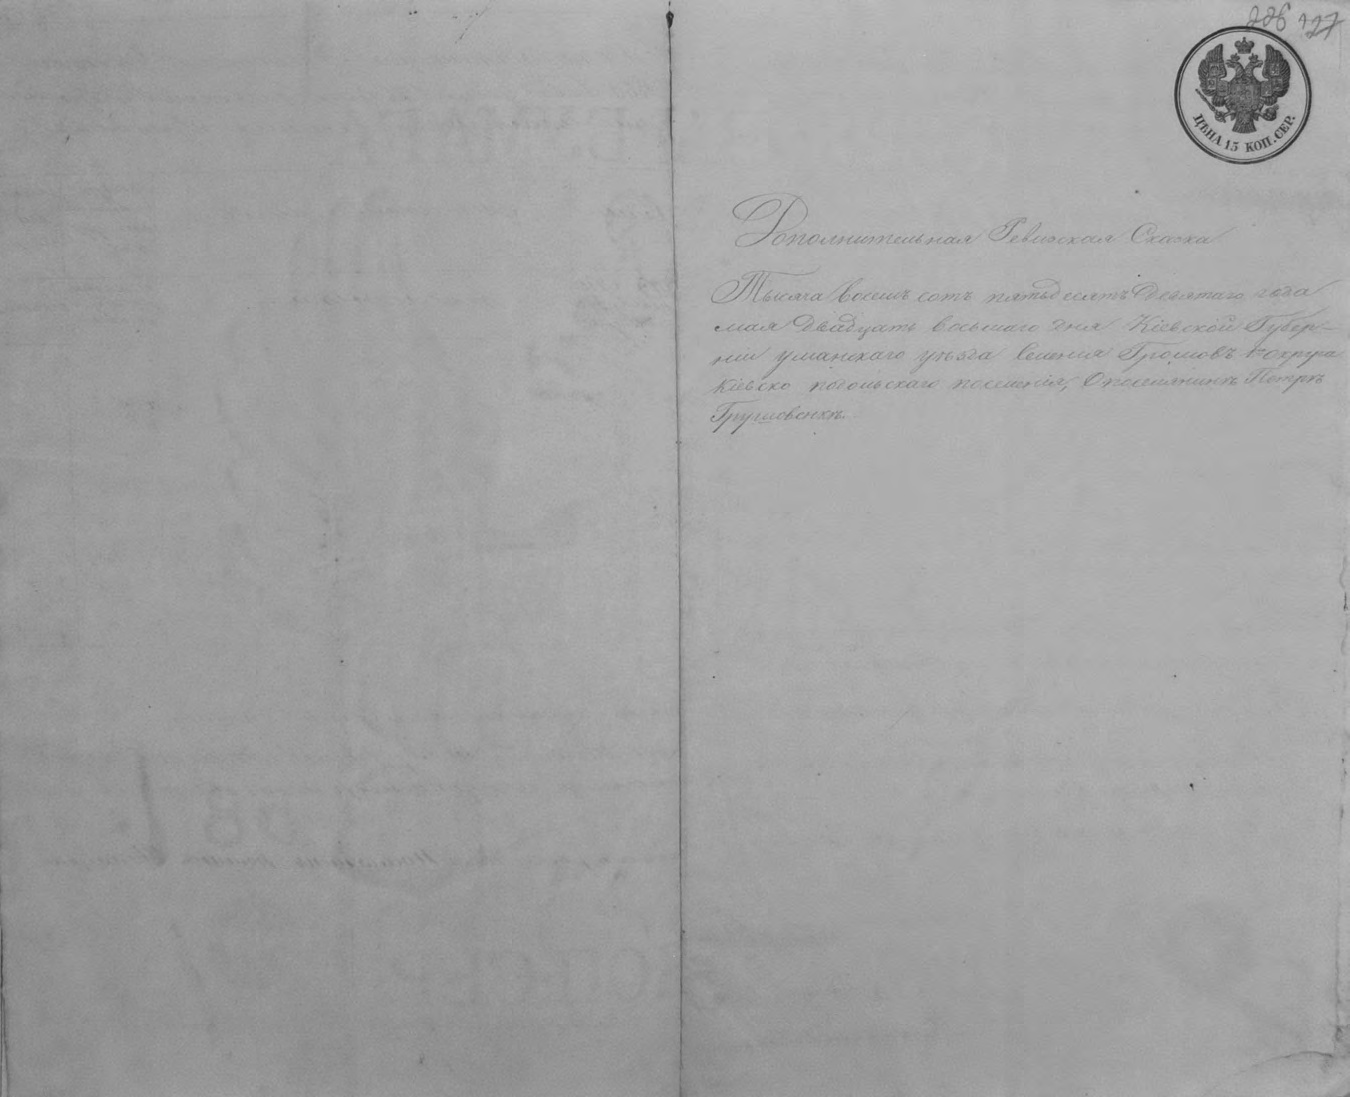 226 127
ЦѢНА 15 КОП. СЕР.
Дополнительная Ревизская Сказка
Тысяча восемь сотъ пятьдесятъ Девятаго года
мая двадцать восьмаго дня Кіевской Губер-
ніи уманскаго уѣзда селенія Громовъ 1го округа
Кіевско подольскаго поселенія, О поселянинѣ Петрѣ